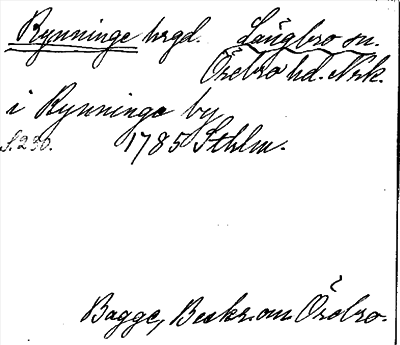 Rynninge hrgd. Längbro sn.
Örebro hd. Nrk.
i Rynninge by
S. 230. 1785 Sthlm.
Bagge, Beskr. om Örebro.